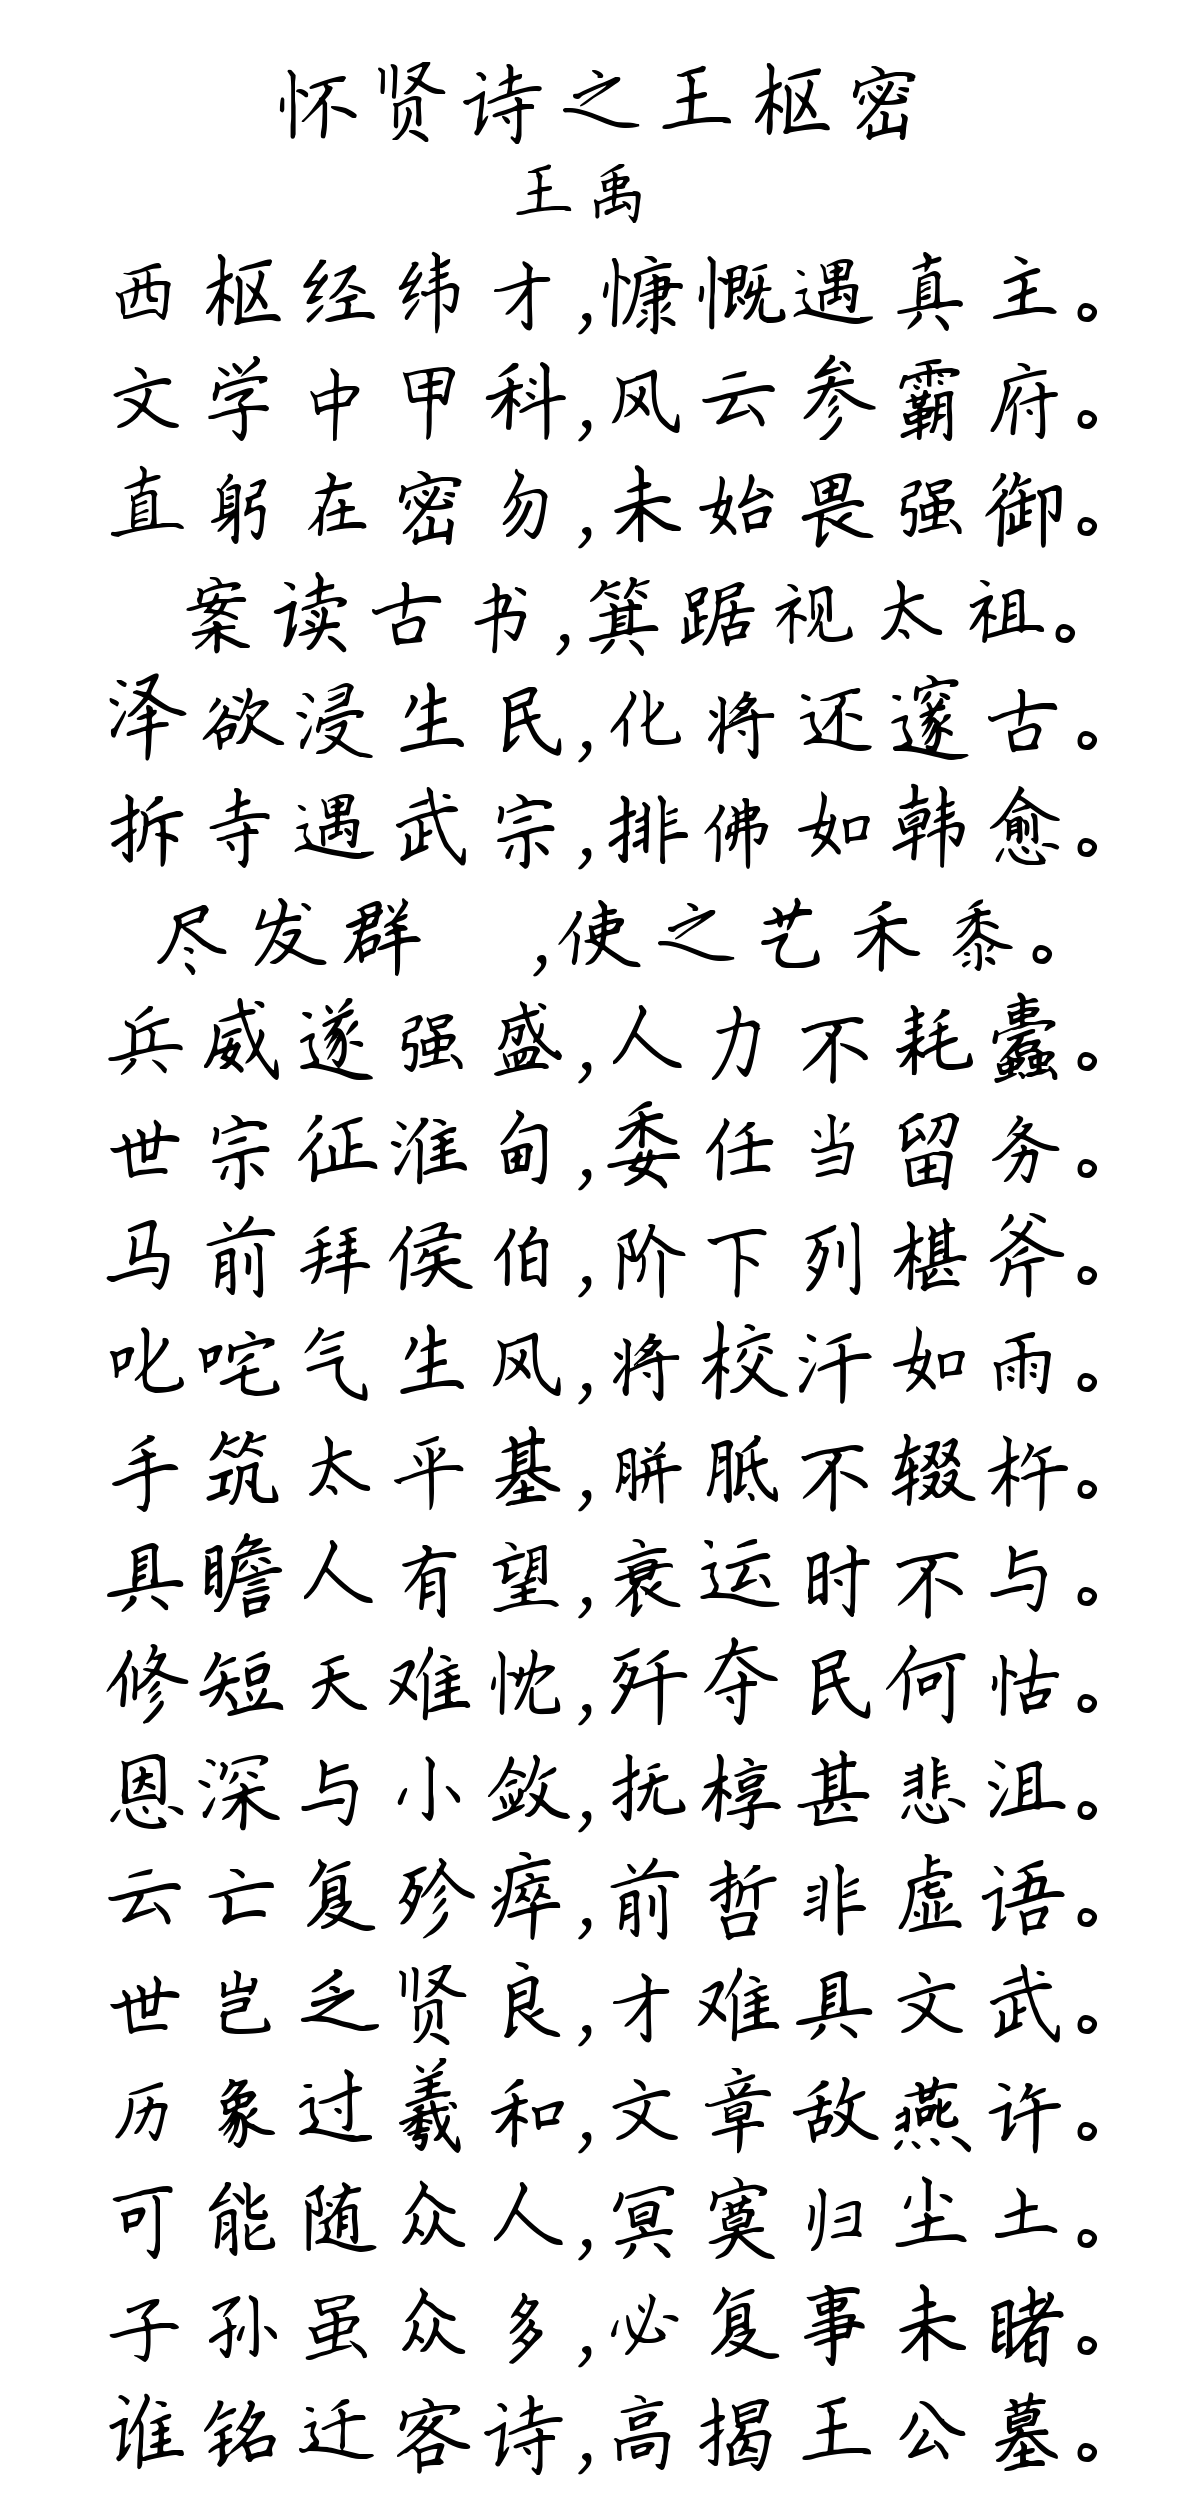 怀贤诗之王枢密
王禹
西枢经纬才,慷慨遇真主。
文学中甲科,风云参霸府。
直躬在密勿,未始畏强御。
案读古书,箕踞视太祖。
泽欲浸生民,化将还邃古。
拆寺遇武宗,排佛如韩愈。
尽发群 ,使之艺禾黍。
兵威遂强盛,人力不耗蠹。
世宗征淮甸,委任当留务。
马前拜侯伯,阶下列椹斧。
叱咤气生风,将校汗如雨。
手筑太平基,胼胝不辍杵。
具瞻人有望,衰运时不与。
修短天难忱,歼夺民何怙。
恩深与小敛,抚棺其悲沮。
云亡复殄瘁,前哲非虚语。
世岂乏贤良,才难具文武。
历象过羲和,文章敌燕许。
可能随众人,冥寞归尘土。
子孙虽众多,必复事未睹。
谁铭迁客诗,高揭王公墓。